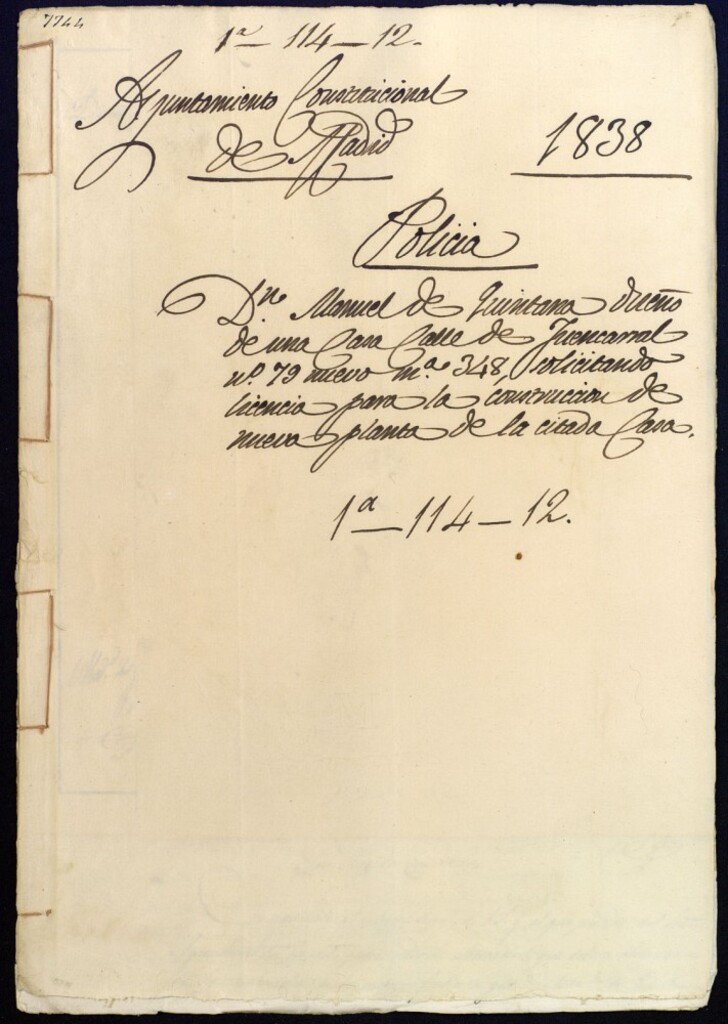 7744
1ª - 114 - 12.
Ayuntamiento Constitucional
de Madrid
1838
Policia
Dn. Manuel de Quintana dueño
de una Casa Calle de Fuencarral
nº. 79 nuevo mª. 348, solicitando
licencia para la construccion de
nueva planta de la citada Casa.
1ª - 114 - 12.